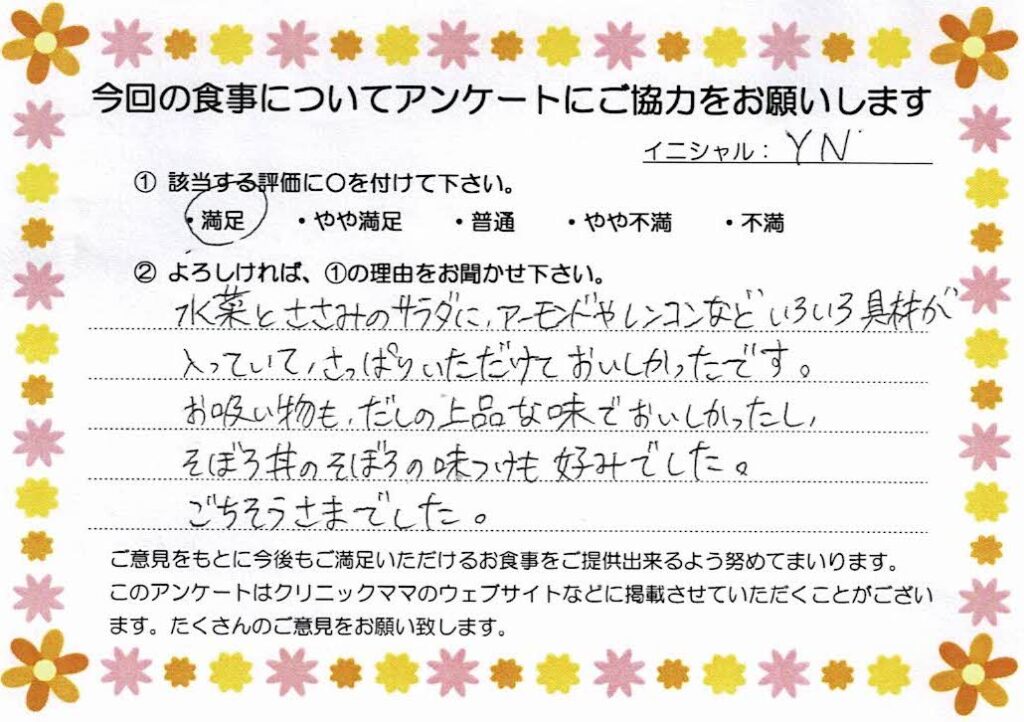 今回の食事についてアンケートにご協力をお願いします
イニシャル：YN
① 該当する評価に〇を付けて下さい。
・満足　・やや満足　・普通　・やや不満　・不満
② よろしければ、①の理由をお聞かせ下さい。
水菜とささみのサラダに、アーモンドやレンコンなどいろいろ具材が
入っていて、さっぱりいただけておいしかったです。
お吸い物も、だしの上品な味でおいしかったし、
そぼろ丼のそぼろの味つけも好みでした。
ごちそうさまでした。
ご意見をもとに今後もご満足いただけるお食事をご提供出来るよう努めてまいります。
このアンケートはクリニックママのウェブサイトなどに掲載させていただくことがござい
ます。たくさんのご意見をお願い致します。